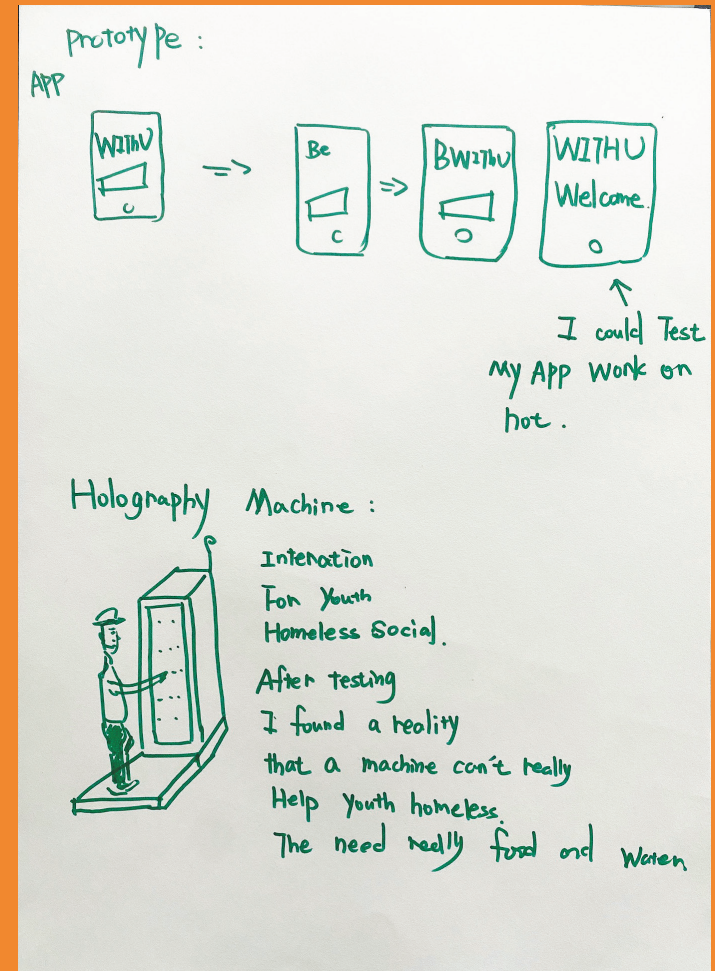 Prototype :
APP
WIThU
Be
BWIThU
WITHU
Welcome.
I could Test
My APP Work on
not.
Holography Machine :
Interation
For Youth
Homeless Social.
After testing
I found a reality
that a machine can't really
Help Youth homeless.
The need really food and Water